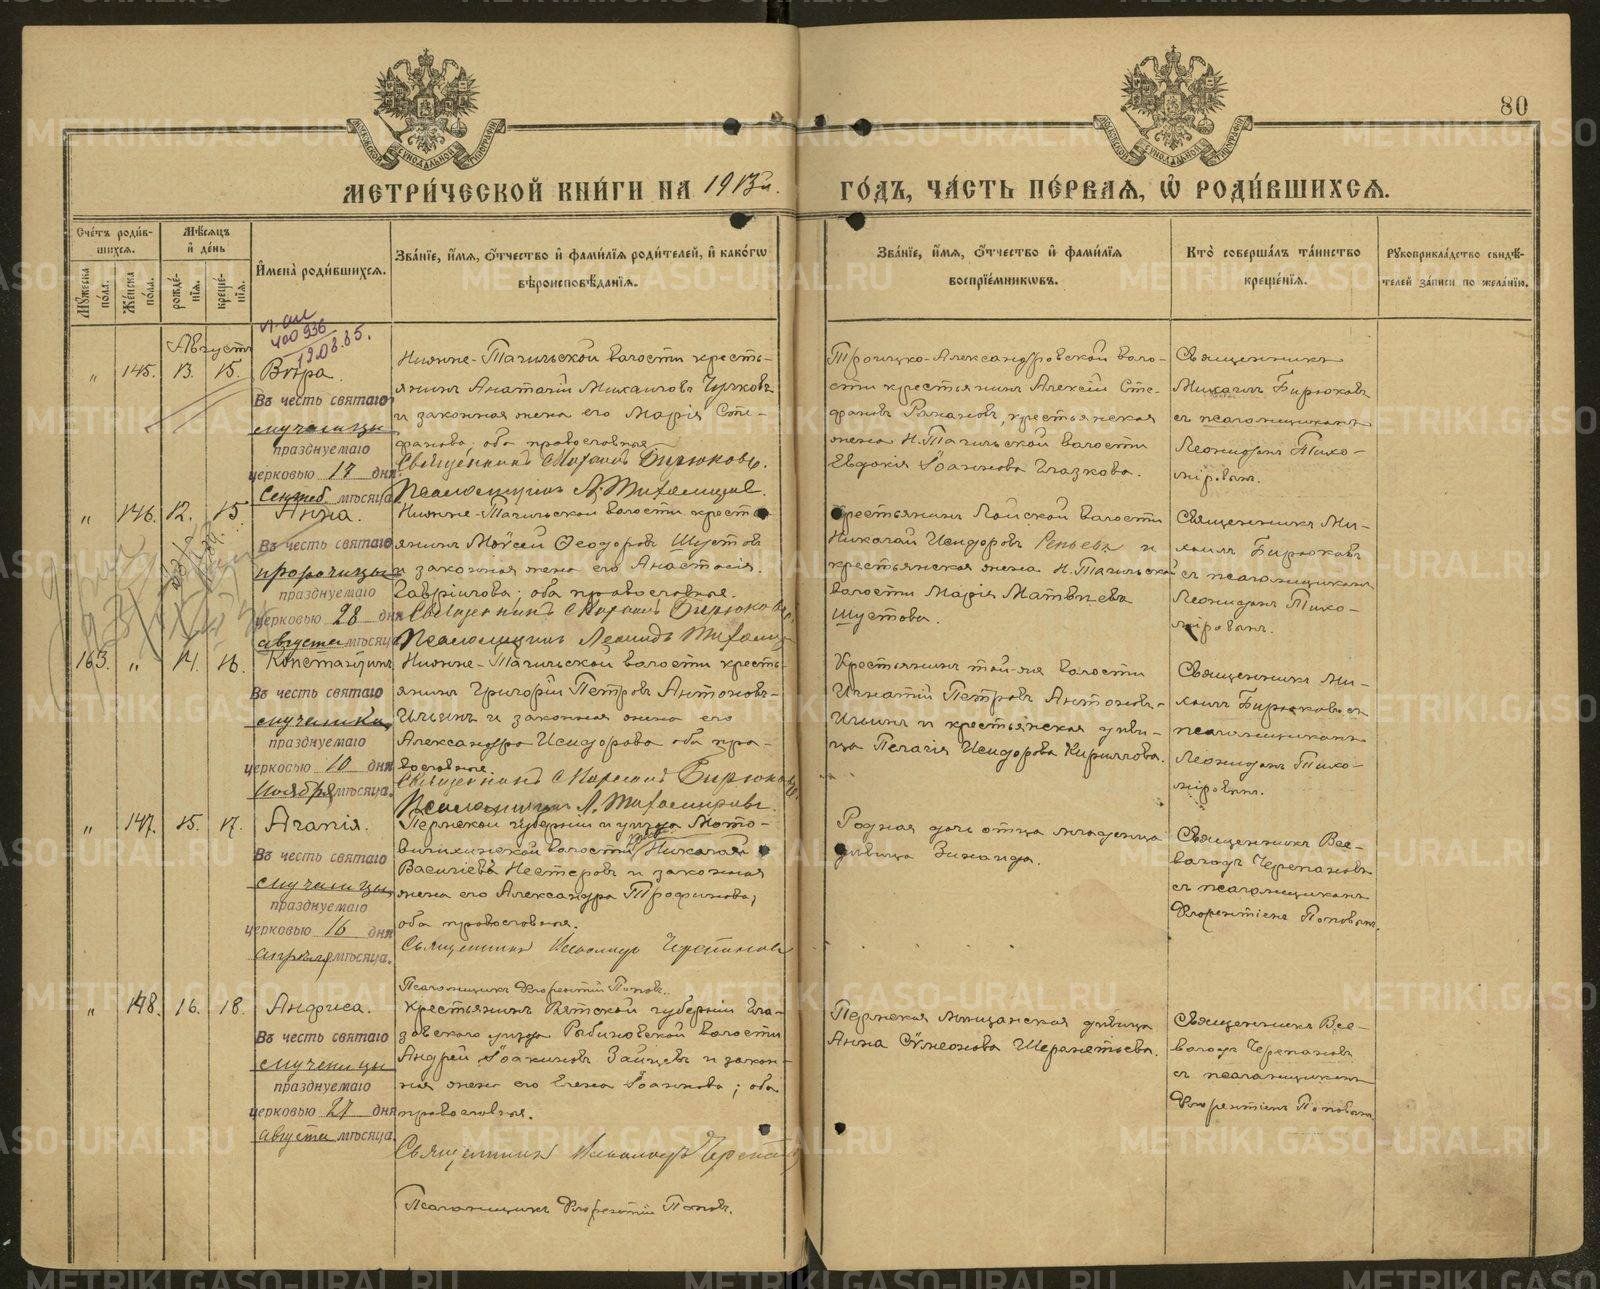 80
МОСКОВСКОЙ СУНОДАЛЬНОЙ ТИПОГРАФІИ
МОСКОВСКОЙ СУНОДАЛЬНОЙ ТИПОГРАФІИ
МЕТРИ́ЧЕСКОЙ КНИ́ГИ НА 1913й. ГО́ДЪ, ЧА́СТЬ ПЕ́РВАѦ, Ѡ҆ РОДИ́ВШИХСѦ.
Сче́тъ роди́вшихсѧ.
Мꙋ́жеска по́ла.
Же́нска по́ла.
Мѣ́сѧцъ и҆ де́нь
рожде́нїѧ.
креще́нїѧ.
И҆мена̀ роди́вшихсѧ.
Зва́нїе, и҆́мѧ, ѻ҆́тчество и҆ фами́лїѧ роди́телей, и҆ како́гѡ
вѣроисповѣ́данїѧ.
Зва́нїе, и҆́мѧ, ѻ҆́тчество и҆ фами́лїѧ
воспрїе́мникѡвъ.
Кто̀ соверша́лъ та́инство
креще́нїѧ.
Рꙋкоприкла́дство свидѣ́-
телей за́писи по жела́нїю.
400936
19.08.85.
Августъ
" 145. 13. 15. Вѣра.
Въ честь святаго
мученицы
празднуемаго
церковью 17 дня
Сентяб мѣсяца
Нижне-Тагильской волости кресть-
янинъ Анатолій Михаиловъ
и законная жена его Марія Сте-
фанова, оба православные.
Священникъ Михаилъ Бирюковъ.
Псаломщикъ Л. Тихомировъ.
Троицко-Александровской воло-
сти крестьянинъ Алексій Сте-
фановъ, крестьянская
жена Н.Тагильской волости
Евдокія Іоаннова Глазкова.
Священникъ
Михаилъ Бирюковъ
съ псаломщикомъ
Леонидомъ Тихо-
мировымъ.
" 146. 12. 15 Анна.
Въ честь святаго
пророчицы
празднуемаго
церковью 28 дня
августа мѣсяца
Нижне-Тагильской волости кресть-
янинъ Моѵсей Ѳеодоровъ Шустовъ
и законная жена его Анастасія
Гавріилова; оба православные.
Священникъ Михаилъ Бирюковъ
Псаломщикъ Леонидъ Тихомир
Крестьянинъ волости
Николай Исидоровъ Репьевъ и
крестьянская жена Н.Тагильской
волости Марія Матвѣева
Шустова.
Священникъ Ми-
хаилъ Бирюковъ
съ псаломщикомъ
Леонидомъ Тихо-
мировымъ.
163. " 14. 16. Константинъ
Въ честь святаго
мученика
празднуемаго
церковью 10 дня
ноября мѣсяца.
Нижне-Тагильской волости кресть-
янинъ Григорій Петровъ Антоновъ-
Ильинъ и законная жена его
Александра Исидорова оба пра-
вославные.
Священникъ Михаилъ Бирюковъ.
Псаломщикъ Л. Тихомировъ.
Крестьянинъ той-же волости
Игнатій Петровъ Антоновъ-
Ильинъ и крестьянская дѣви-
ца Пелагія Исидорова Кириллова.
Священникъ Ми-
хаилъ Бирюковъ съ
псаломщикомъ
Леонидомъ Тихо-
мировымъ.
" 147. 15. 17. Агапія.
Въ честь святаго
мученицы
празднуемаго
церковью 16 дня
апреля мѣсяца.
Пермской губерніи и уѣзда Мото-
вилихинской волости Николай
Василіевъ Нестеровъ и законная
жена его Александра Трофимова,
оба православные.
Священникъ Всеволодъ Черепановъ
Псаломщикъ Флорентій Поповъ.
Родная дочь отца младенца
дѣвица Зинаида.
Священникъ Все-
володъ Черепановъ
съ псаломщикомъ
Флорентіемъ Поповымъ.
" 148. 16. 18. Анфиса.
Въ честь святаго
мученицы
празднуемаго
церковью 27 дня
августа мѣсяца.
Крестьянинъ Вятской губерніи Гла-
зовскаго уѣзда Рыбиновской волости
Андрей Іоакимовъ Зайцевъ и закон-
ная жена его Елена Іоаннова; оба
православные.
Священникъ Всеволодъ Черепанов
Псаломщикъ Флорентій Поповъ.
Пермская мѣщанская дѣвица
Анна Сѵмеонова Шереметьева.
Священникъ Все-
володъ Черепановъ
съ псаломщикомъ
Флорентіемъ Поповымъ
METRIKI.GASO-URAL.RU